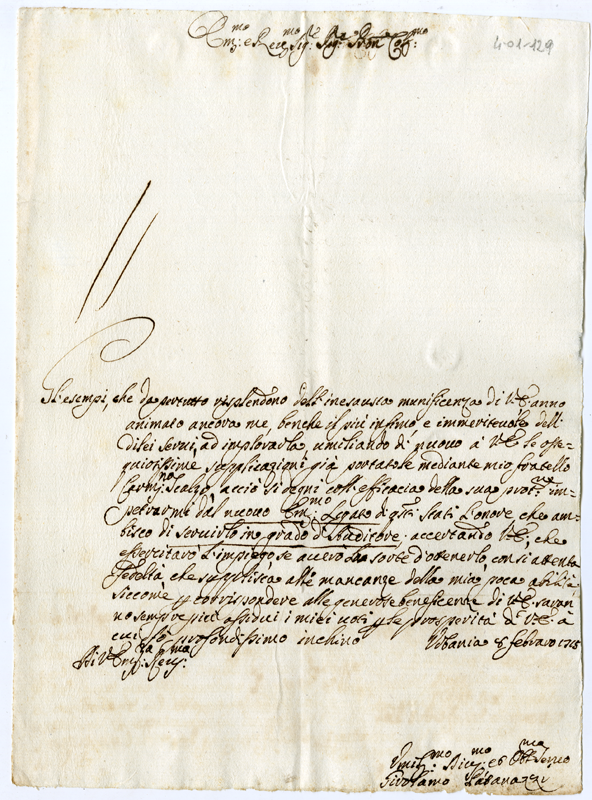 Em:mo e Rev:mo Sig:re Sig:re Pron Col:mo
4-01-129
Gl'esempi, che da pertutto risplendono dell'inesausta munificenza di V.E. anno
animato ancora me, benche il più infimo e immeritevole dell'
Dilei Servi, ad implorarla, umiliando di nuovo a V.E. le osse-
quiosissime supplicazioni già portatele mediante mio fratello
Carm:no Scalzo, acciò si degni coll'efficacia della sua prot:ne im-
petrarmi dal nuovo Em:mo Legato di q:sti Stati l'onore che am-
bisco di servirlo in grado d'Auditore: accertando V.E. che
esercitarò l'impiego se averò la sorte d'ottenerlo, con sì attenta
fedeltà che supplisca alle mancanze della mia poca abilità,
siccome p corrispondere alle generose beneficenze di V.E. saran-
no sempre più assidui i miei voti p le prosperità di V.E. a
cui fò profondissimo inchino Urbania 8 febraro 1715
Di V. Em:za Rev:ma
Umil:mo Div:mo ed Obb:mo Servo
Girolamo